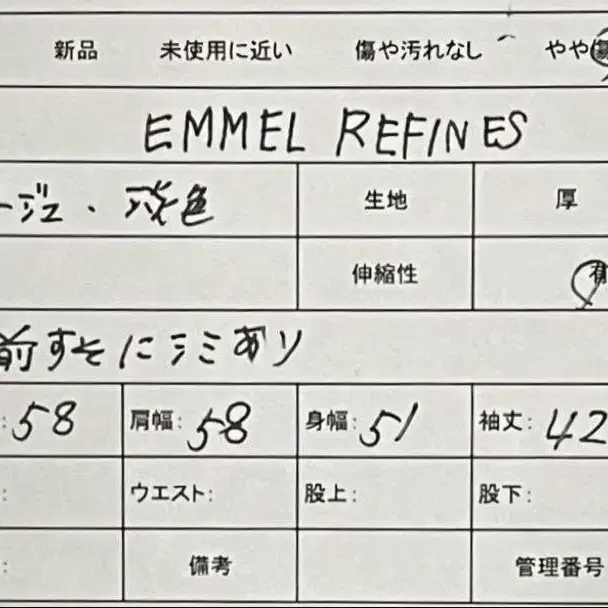 新品 未使用に近い 傷や汚れなし やや傷
EMMEL REFINES
ージュ・淡色 生地 厚
伸縮性 有
前すそにシミあり
:58 肩幅:58 身幅:51 袖丈:42
: ウエスト: 股上: 股下:
: 備考 管理番号